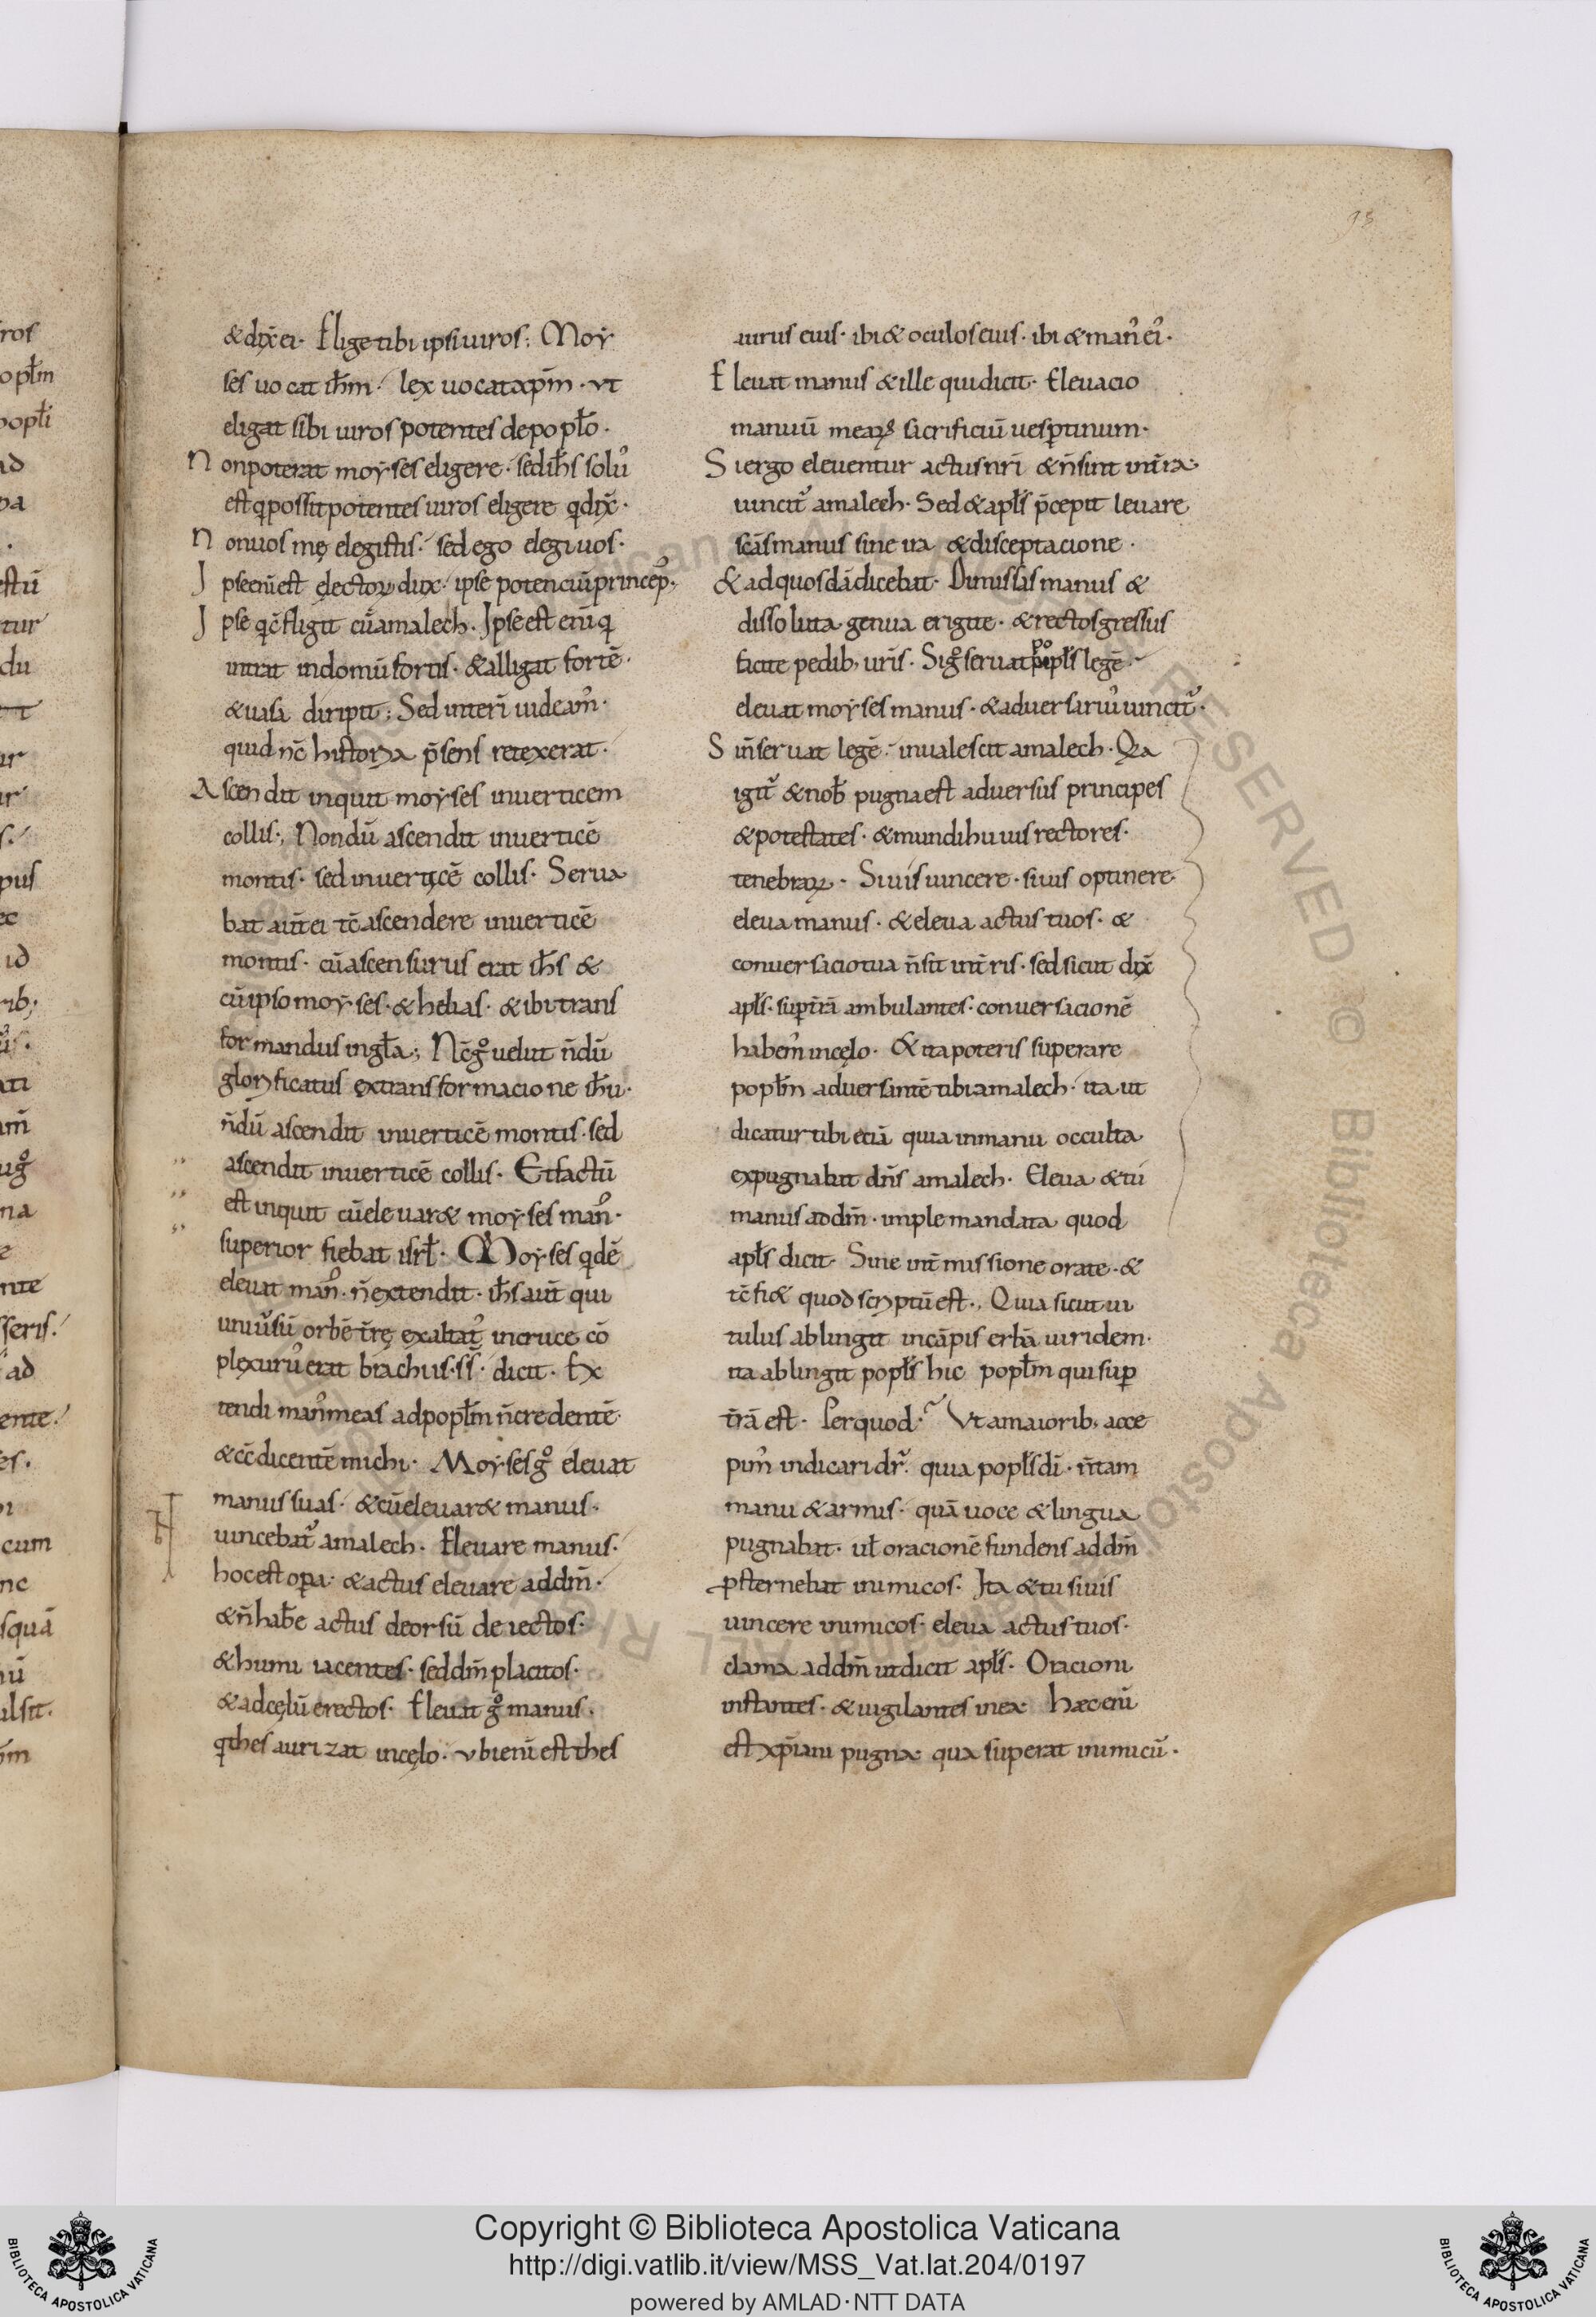 95
& dix̄ ei· Elige tibi ipsi uiros; Moẏ
ses uocat ih̄m· lex uocat xp̄m· ut
eligat sibi uiros potentes de popl̄o·
Non poterat moẏses eligere· sed ih̄s solus
est q possit potentes uiros eligere q dix̄·
Non uos mę elegistis· sed ego elegi uos·
Ipse enī est electoꝝ dux· ipse potenciū princeps·
Ipse qui c̄fligit cū amalech· Ipse est enī q
intrat in domū fortis· & alligat fortē·
& uasa diripit; Sed interī uideam᷒·
quid nc̄ historia p̄sens retexerat·
Ascendit inquit moẏses in uerticem
collis; Nondū ascendit in uerticē
montis· sed in uerticē collis· Serua
bat aūt ei tc̄ ascendere in uerticē
montis· cū ascensurus erat ih̄s &
cū ipso moẏses· & helias· & ibi trans
formandus in gl̄a; Nc̄ gͦ uelut n̄dū
glorificatus ex transformacione ih̄u·
n̄dū ascendit in uerticē montis· sed
ascendit in uerticē collis· Et factū
est inquit cū eleuar& moẏses man᷒·
superior fiebat isrl̄· Moẏses qdē
eleuat man᷒· n̄ extendit· ih̄s aūt qui
uniūsū orbē t̄rę exaltat᷒ in cruce cō
plexur᷒ erat brachiis· ss̄· dicit· Ex
tendi man᷒ meas ad popl̄m n̄ credentē·
& c̄c̄dicentē michi· Moẏses gͦ eleuat
manus suas· & cū eleuar& manus·
uincebat᷒ amalech· Eleuare manus·
hoc est opa· & actus eleuare ad dm̄·
& n̄ hab̄e actus deorsū deiectos·
& humi iacentes· sed dm̄ placitos·
& ad cęlū erectos· Eleuat gͦ manus·
q thesaurizat in cęlo· ubi enī est thes
aurus eius· ibi & oculos eius· ibi & man᷒ ei᷒·
Eleuat manus & ille qui dicit· Eleuacio
manuū meaꝝ sacrificiū uesptinum·
Si ergo eleuentur actus nr̄i & n̄ sint in t̄ra·
uincit᷒ amalech· Sed & apl̄s p̄cepit leuare
scās manus sine ira & disceptacione·
& ad quosdā dicebat· Dimissas manus &
dissoluta genua erigite· & rectos gressus
facite pedib; ur̄is· Si gͦ seruat popl̄s legē·
eleuat moẏses manus· & aduersari᷒ uincit᷒·
Si n̄ seruat legē· inualescit amalech· Qia
igit᷒ & nob̄ pugna est aduersus principes
& potestates· & mundi huius rectores·
tenebraꝝ· Si uis uincere· si uis optinere
eleua manus· & eleua actus tuos· &
conuersacio tua n̄ sit in t̄ris· sed sicut dix̄
apl̄s· sup t̄rā ambulantes· conuersacionē
habem᷒ in cęlo· & ita poteris superare
popl̄m aduersantē tibi amalech· ita ut
dicatur tibi eciā quia in manu occulta
expugnabit dn̄s amalech· Eleua & tu
manus ad dm̄· imple mandata quod
apl̄s dicit· Sine int̄missione orate· &
tc̄ fi& quod scriptū est· Quia sicut ui
tulus ablingit in cāpis erbā uiridem·
ita ablingit popl̄s hic popl̄m qui sup
t̄rā est· Per quod· Ut a maiorib; acce
pim᷒ indicari dr̄· quia popl̄s dī· n̄ tam
manu & armis· quā uoce & lingua
pugnabat· ul̄ oracionē fundens ad dm̄
psternebat inimicos· Ita & tu si uis
uincere inimicos· eleua actus tuos·
clama ad dm̄ ut dicit apl̄s· Oracioni
instantes· & uigilantes in ea· Hæc enī
est xp̄iani pugna· qua superat inimicū·
Copyright © Biblioteca Apostolica Vaticana
http://digi.vatlib.it/view/MSS_Vat.lat.204/0197
powered by AMLAD·NTT DATA
BIBLIOTECA APOSTOLICA VATICANA
BIBLIOTECA APOSTOLICA VATICANA